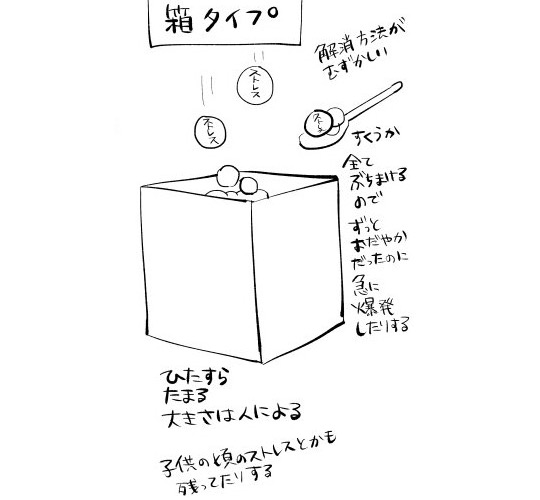 箱タイプ
解消方法が
むずかしい
ストレス
ストレス
ストレス
すくうか
全て
ぶちまける
ので
ずっと
おだやか
だったのに
急に
爆発
したりする
ひたすら
たまる
大きさは人による
子供の頃のストレスとかも
残ってたりする